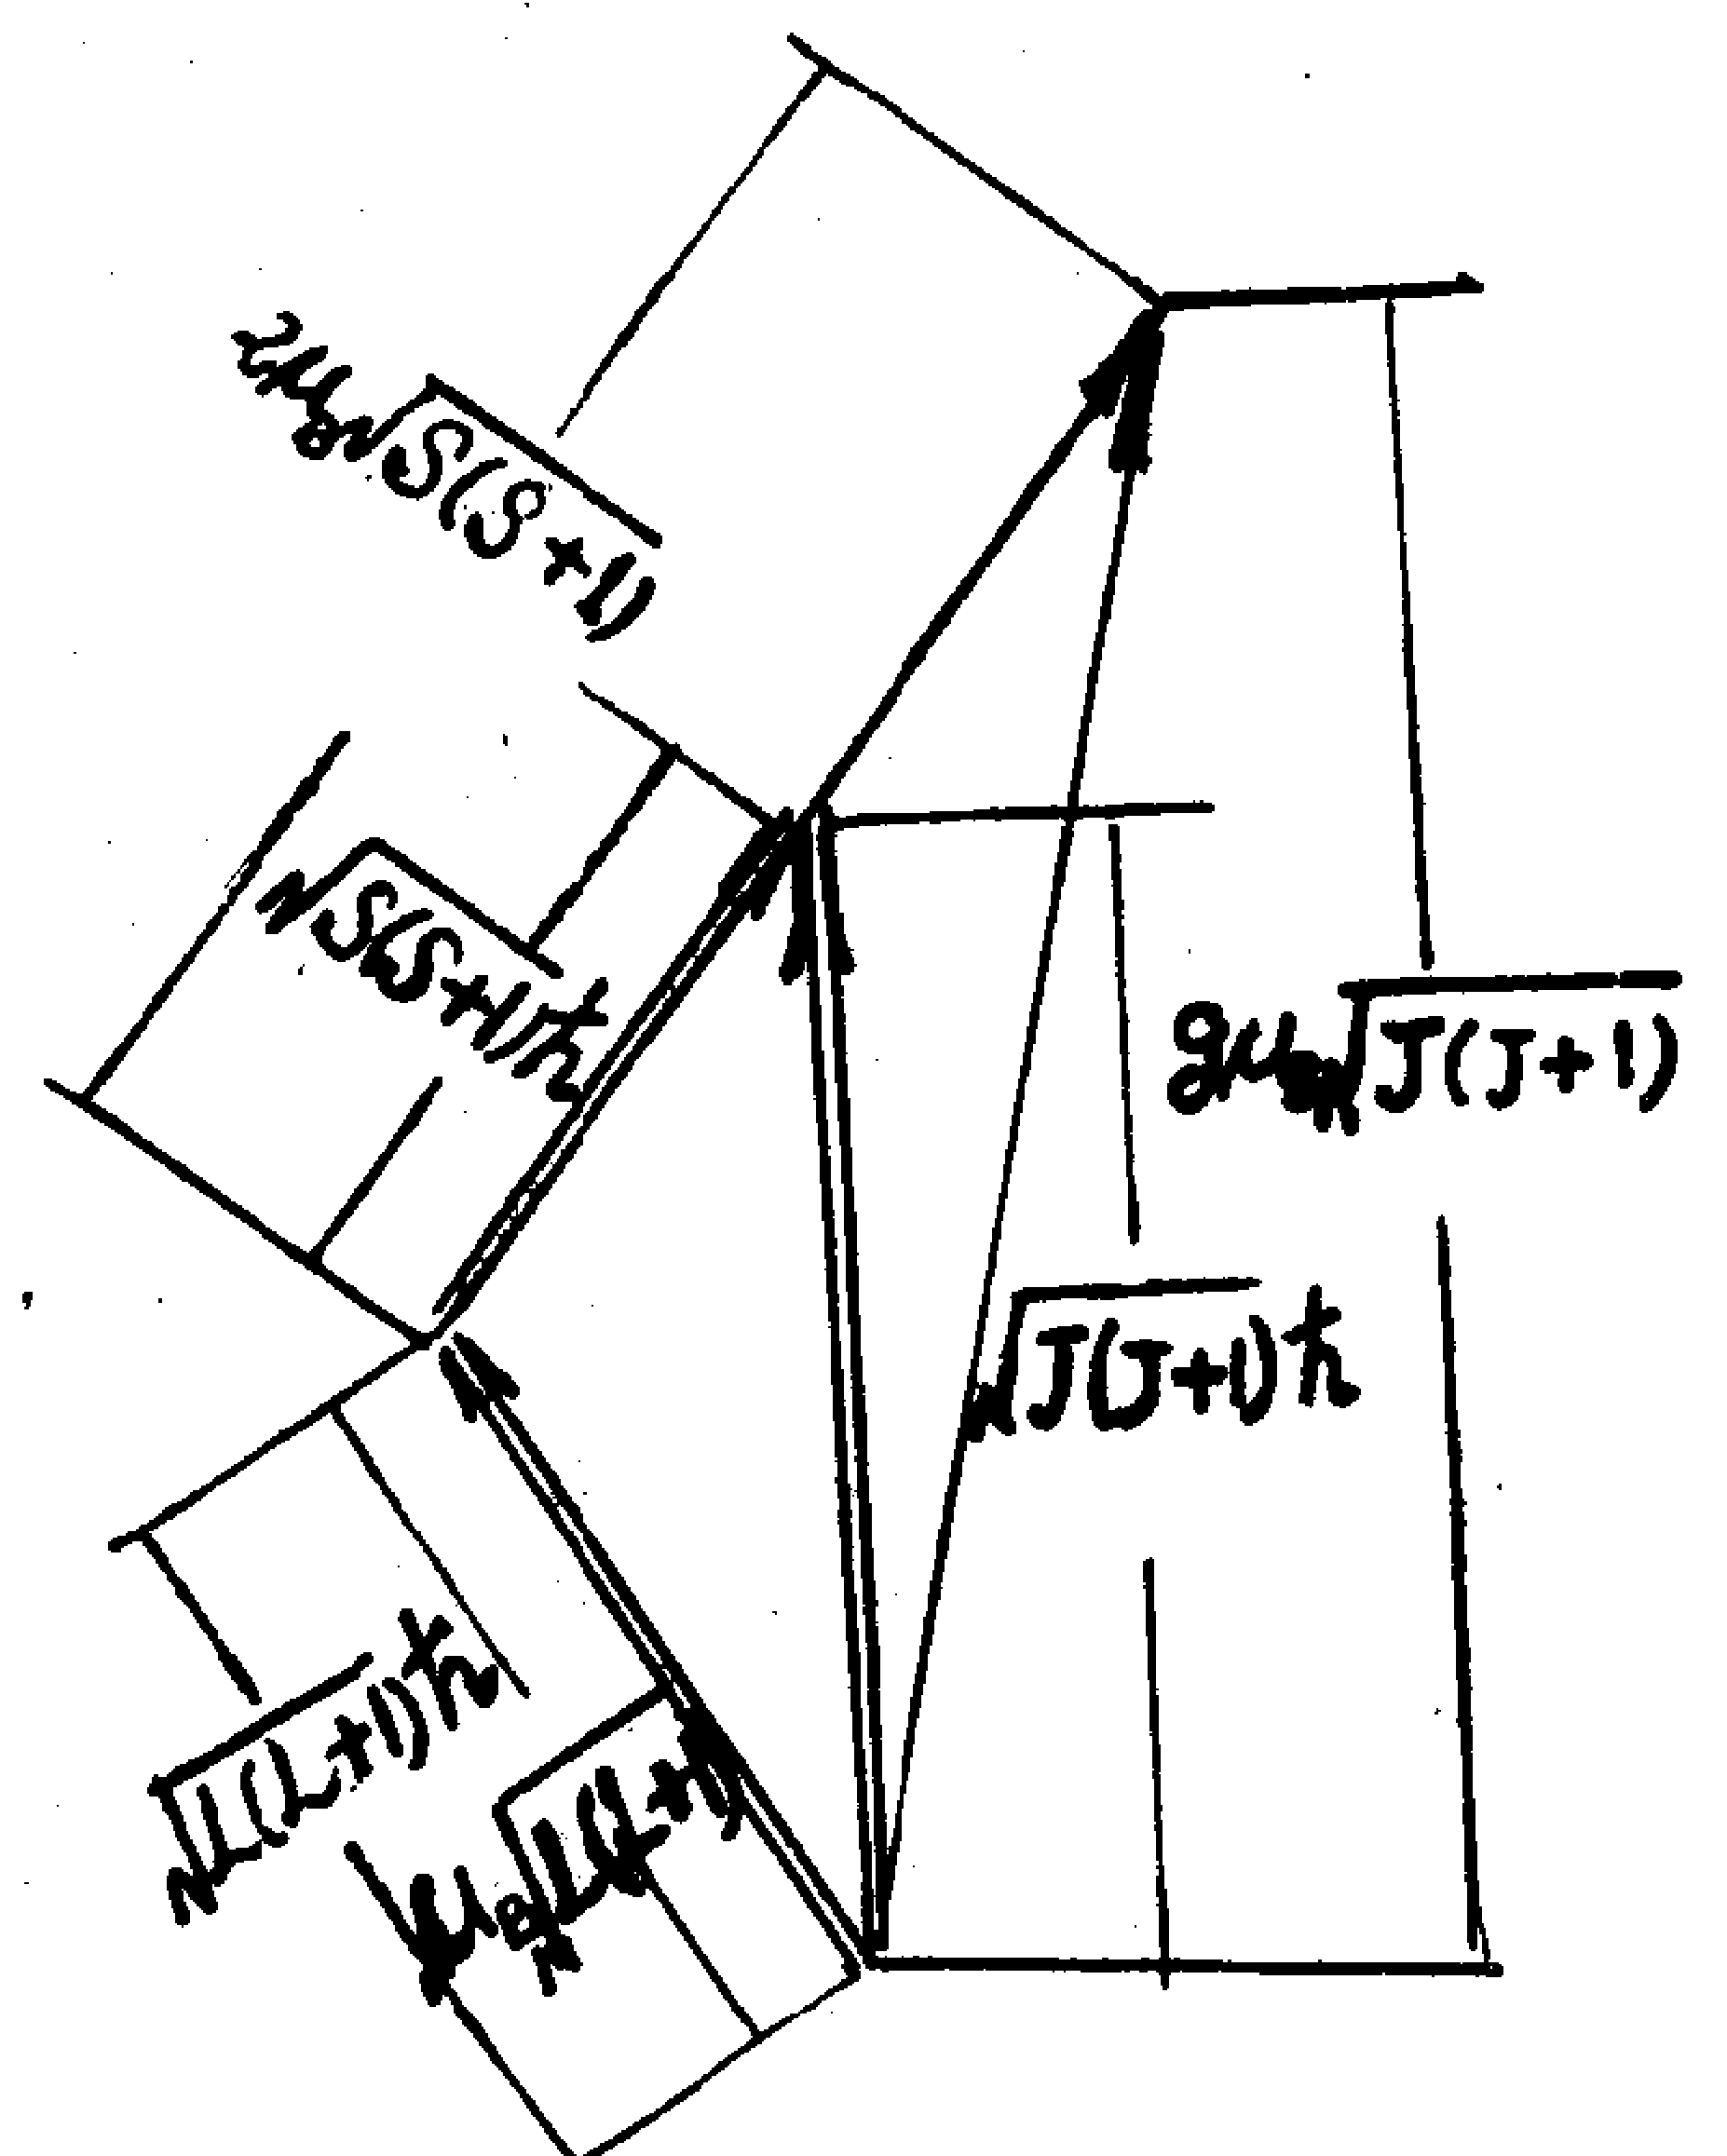 2μ_B√S(S+1)
√S(S+1)ħ
gμ_B√J(J+1)
√J(J+1)ħ
√L(L+1)ħ
μ_B√L(L+1)